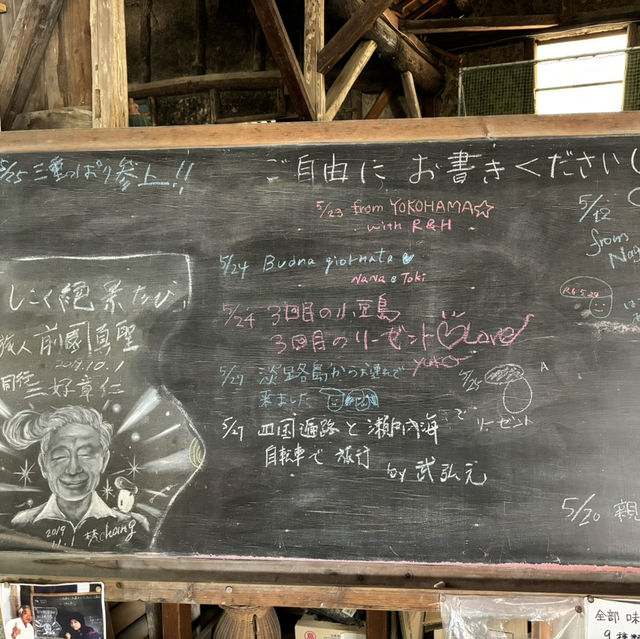 ご自由に お書きください
5/25 三重っぱり参上!!
5/23 from YOKOHAMA☆
with R&H
5/12
from
Nag
5/24 Buona giornata
NANA & Toki
5/24 3回目の小豆島
3回目のリーゼント Love
yuko
R6 5.20
5/27 淡路島からお遍路で
来ました
5/25
A
リーゼント
で
5/27 四国遍路と瀬戸内海
自転車で 旅行
by 武弘元
5/20 親
しこく絶景たび
旅人 前園真聖
2019.10.1
同行 三好章仁
2019
chang
全部 味